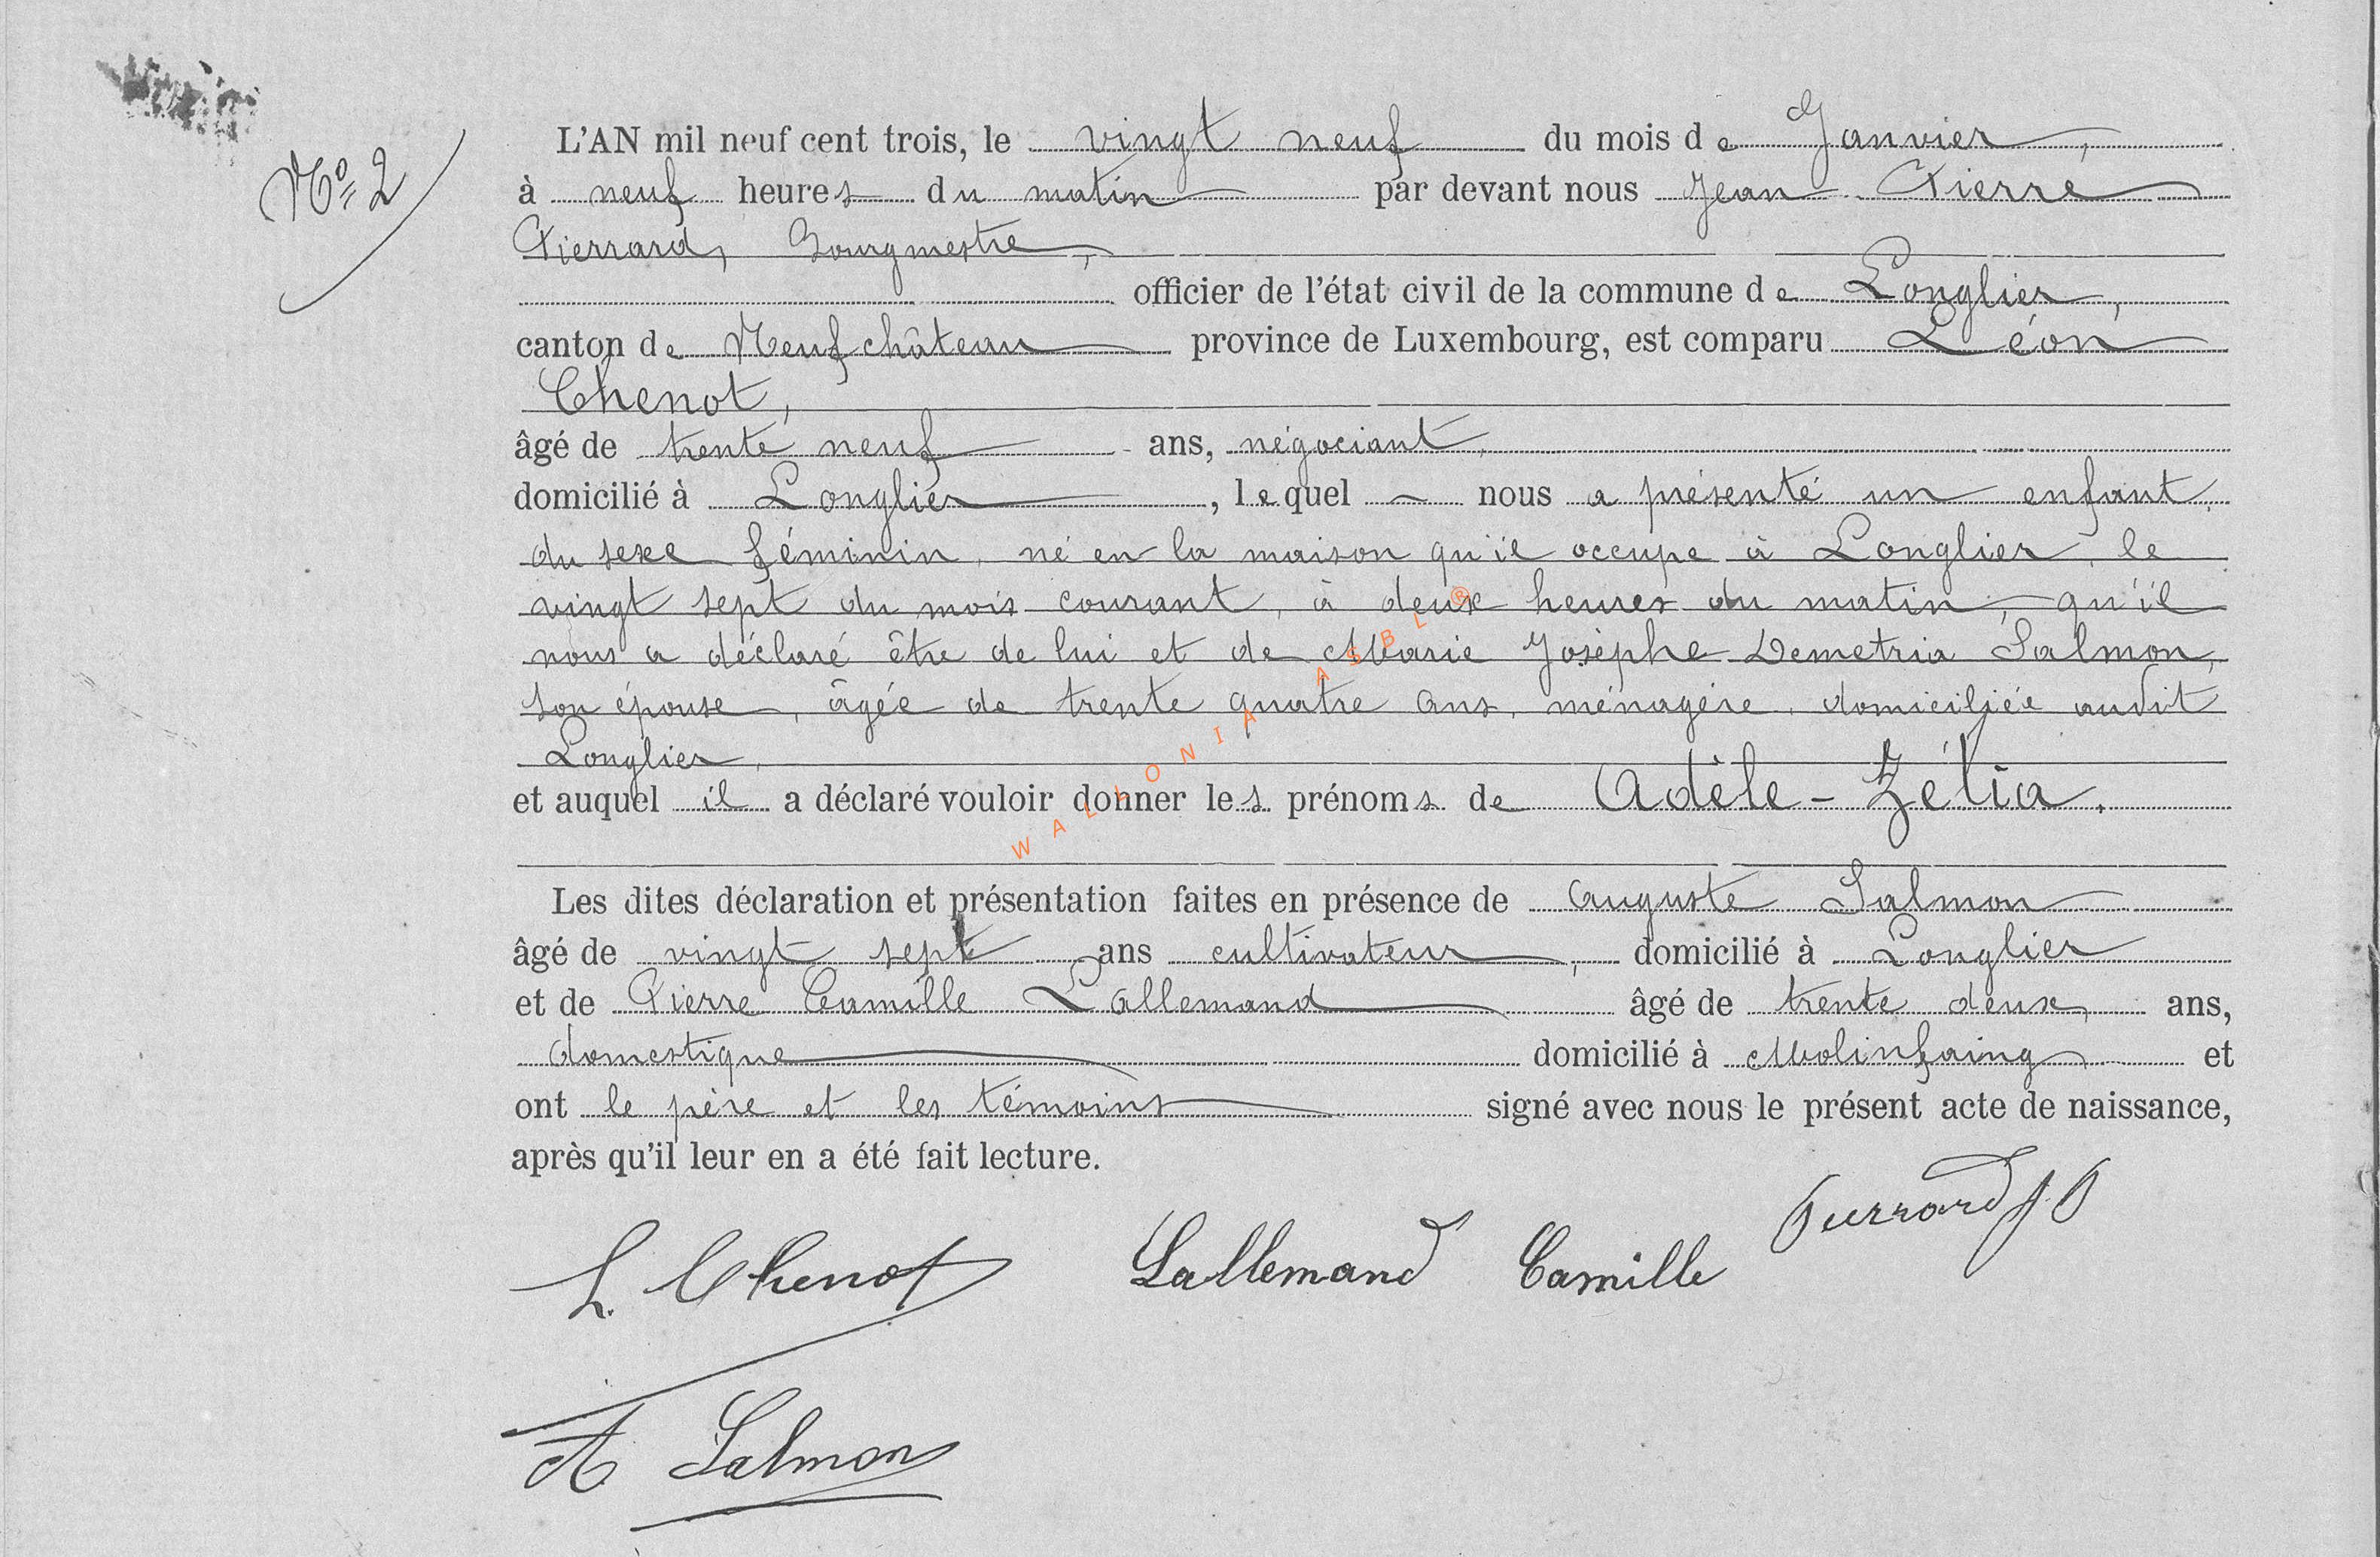 Nº 2
L'AN mil neuf cent trois, le vingt neuf du mois de Janvier,
à neuf heures du matin par devant nous Jean Pierre
Pierrard, Bourgmestre,
officier de l'état civil de la commune de Longlier,
canton de Neufchâteau province de Luxembourg, est comparu Léon
Chenot,
âgé de trente neuf ans, négociant,
domicilié à Longlier, lequel nous a présenté un enfant
du sexe féminin, né en la maison qu'il occupe à Longlier, le
vingt sept du mois courant, à deux heures du matin, qu'il
nous a déclaré être de lui et de Marie Josèphe Demetria Salmon,
son épouse, âgée de trente quatre ans, ménagère, domiciliée audit
Longlier,
et auquel il a déclaré vouloir donner les prénoms de Adèle-Zélia.
Les dites déclaration et présentation faites en présence de Auguste Salmon
âgé de vingt sept ans cultivateur, domicilié à Longlier
et de Pierre Camille Lallemand âgé de trente deux, ans,
domestique domicilié à Molinfaing, et
ont le père et les témoins signé avec nous le présent acte de naissance,
après qu'il leur en a été fait lecture.
Pierrard JP
L. Chenot Lallemand Camille
A Salmon
WALLONIA ASBL ®